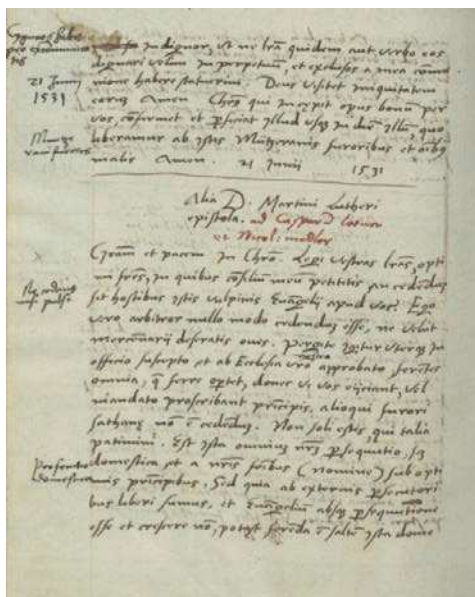 21 Junii
1531
indignor, ut ne lram quidem aut verbo eos
dignari velim in perpetuum, et exclusos a mea comu
nione habere statuerim. Deus visitet iniquitatem
eorum Amen. Chrs qui incepit opus bonum per
vos, confirmet et perficiat illud usq in diem illum, quo
liberamur ab istis Müntzeranis furoribus et oibus
malis Amen 21 Junii 1531
Alia D. Martini Lutheri
epistola. ad Caspar
et Nicol: medler
Gram et pacem in Chro. Legi vestras lras, opti
mi fres, in quibus consilium meum petitis an cedendum
sit hostibus istis vulpinis Euangelij apud vos? Ego
vero arbitror nullo modo cedendum esse, ne velut
mercenarij deseratis oues. Pergite igitur uterq in
officio suscepto et ab Ecclesia vra approbato, ferentes
omnia, q ferre oportet, donec vi vos eijciant, vel
mandato proscribant principis, alioqui furori
sathanę non e cedendum. Non soli estis, qui talia
patimini. Est ista omnium nrm persequutio, sz
domestica et a nris fribus (nomine) sub opti
mis principibus. Sed quia ab externis persecutori
bus liberi sumus, et Euangelium absq persequutione
esse et crescere non potest, ferenda e saltem ista dome